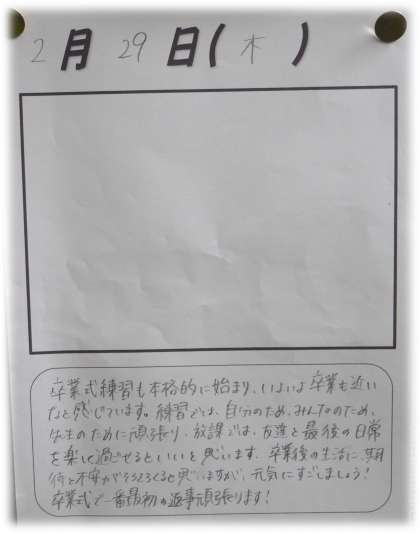 2月29日(木)
卒業式練習も本格的に始まり、いよいよ卒業も近い
なと感じています。練習では、自分のため、みんなのため、
先生のために頑張り、放課では、友達と最後の日常
を楽しく過ごせるといいと思います。卒業後の生活に、期
待と不安がそれぞれあると思いますが、元気にすごしましょう!
卒業式で一番最初の返事頑張ります!